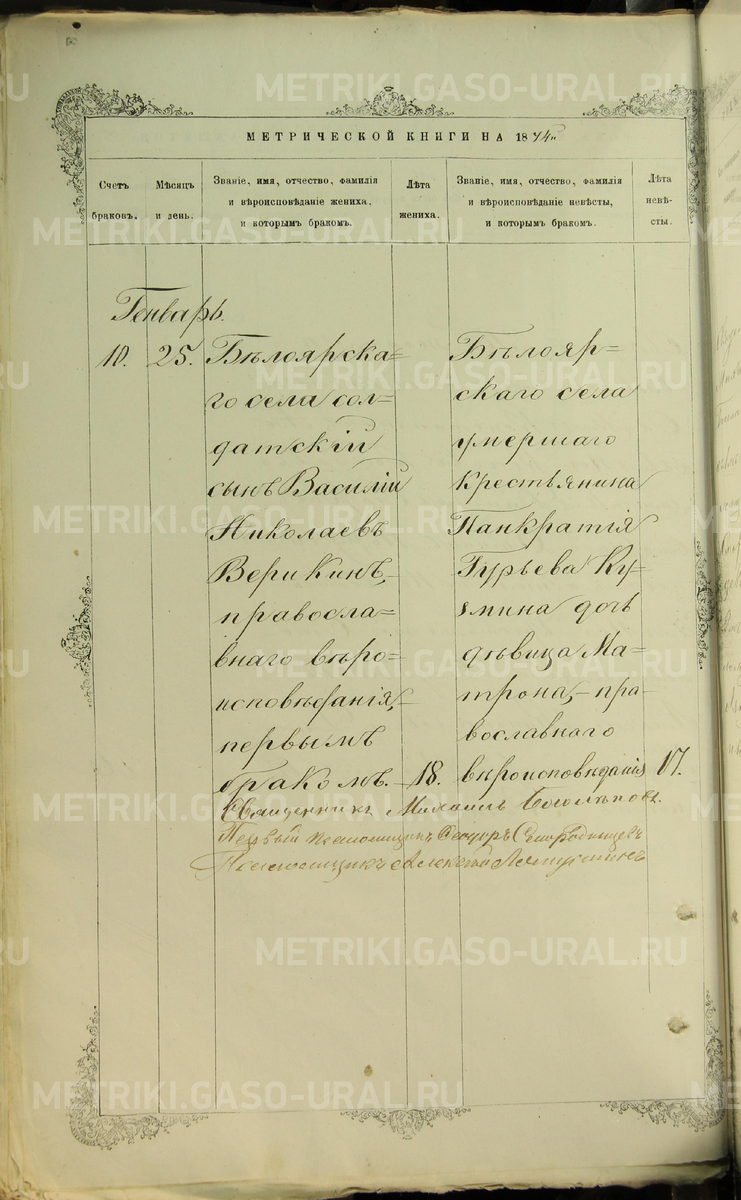 МЕТРИЧЕСКОЙ КНИГИ НА 1874й
Счетъ браковъ.
Мѣсяцъ и день.
Званіе, имя, отчество, фамилія и вѣроисповѣданіе жениха, и которымъ бракомъ.
Лѣта жениха.
Званіе, имя, отчество, фамилія и вѣроисповѣданіе невѣсты, и которымъ бракомъ.
Лѣта невѣсты.
Генварь.
10.
25.
Бѣлоярска=
го села сол=
датскій
сынъ Василій
Николаевъ
Верикинъ,
правосла=
внаго вѣро=
исповѣданія,
первымъ
бракомъ.
18.
Бѣлояр=
скаго села
умершаго
крестьянина
Панкратія
Гурьева Ку=
змина дочь
дѣвица Ма=
трона, пра=
вославнаго
вѣроисповѣданія
17.
Священникъ Михаилъ
Первый Ѳеодоръ
Алексѣй
METRIKI.GASO-URAL.RU